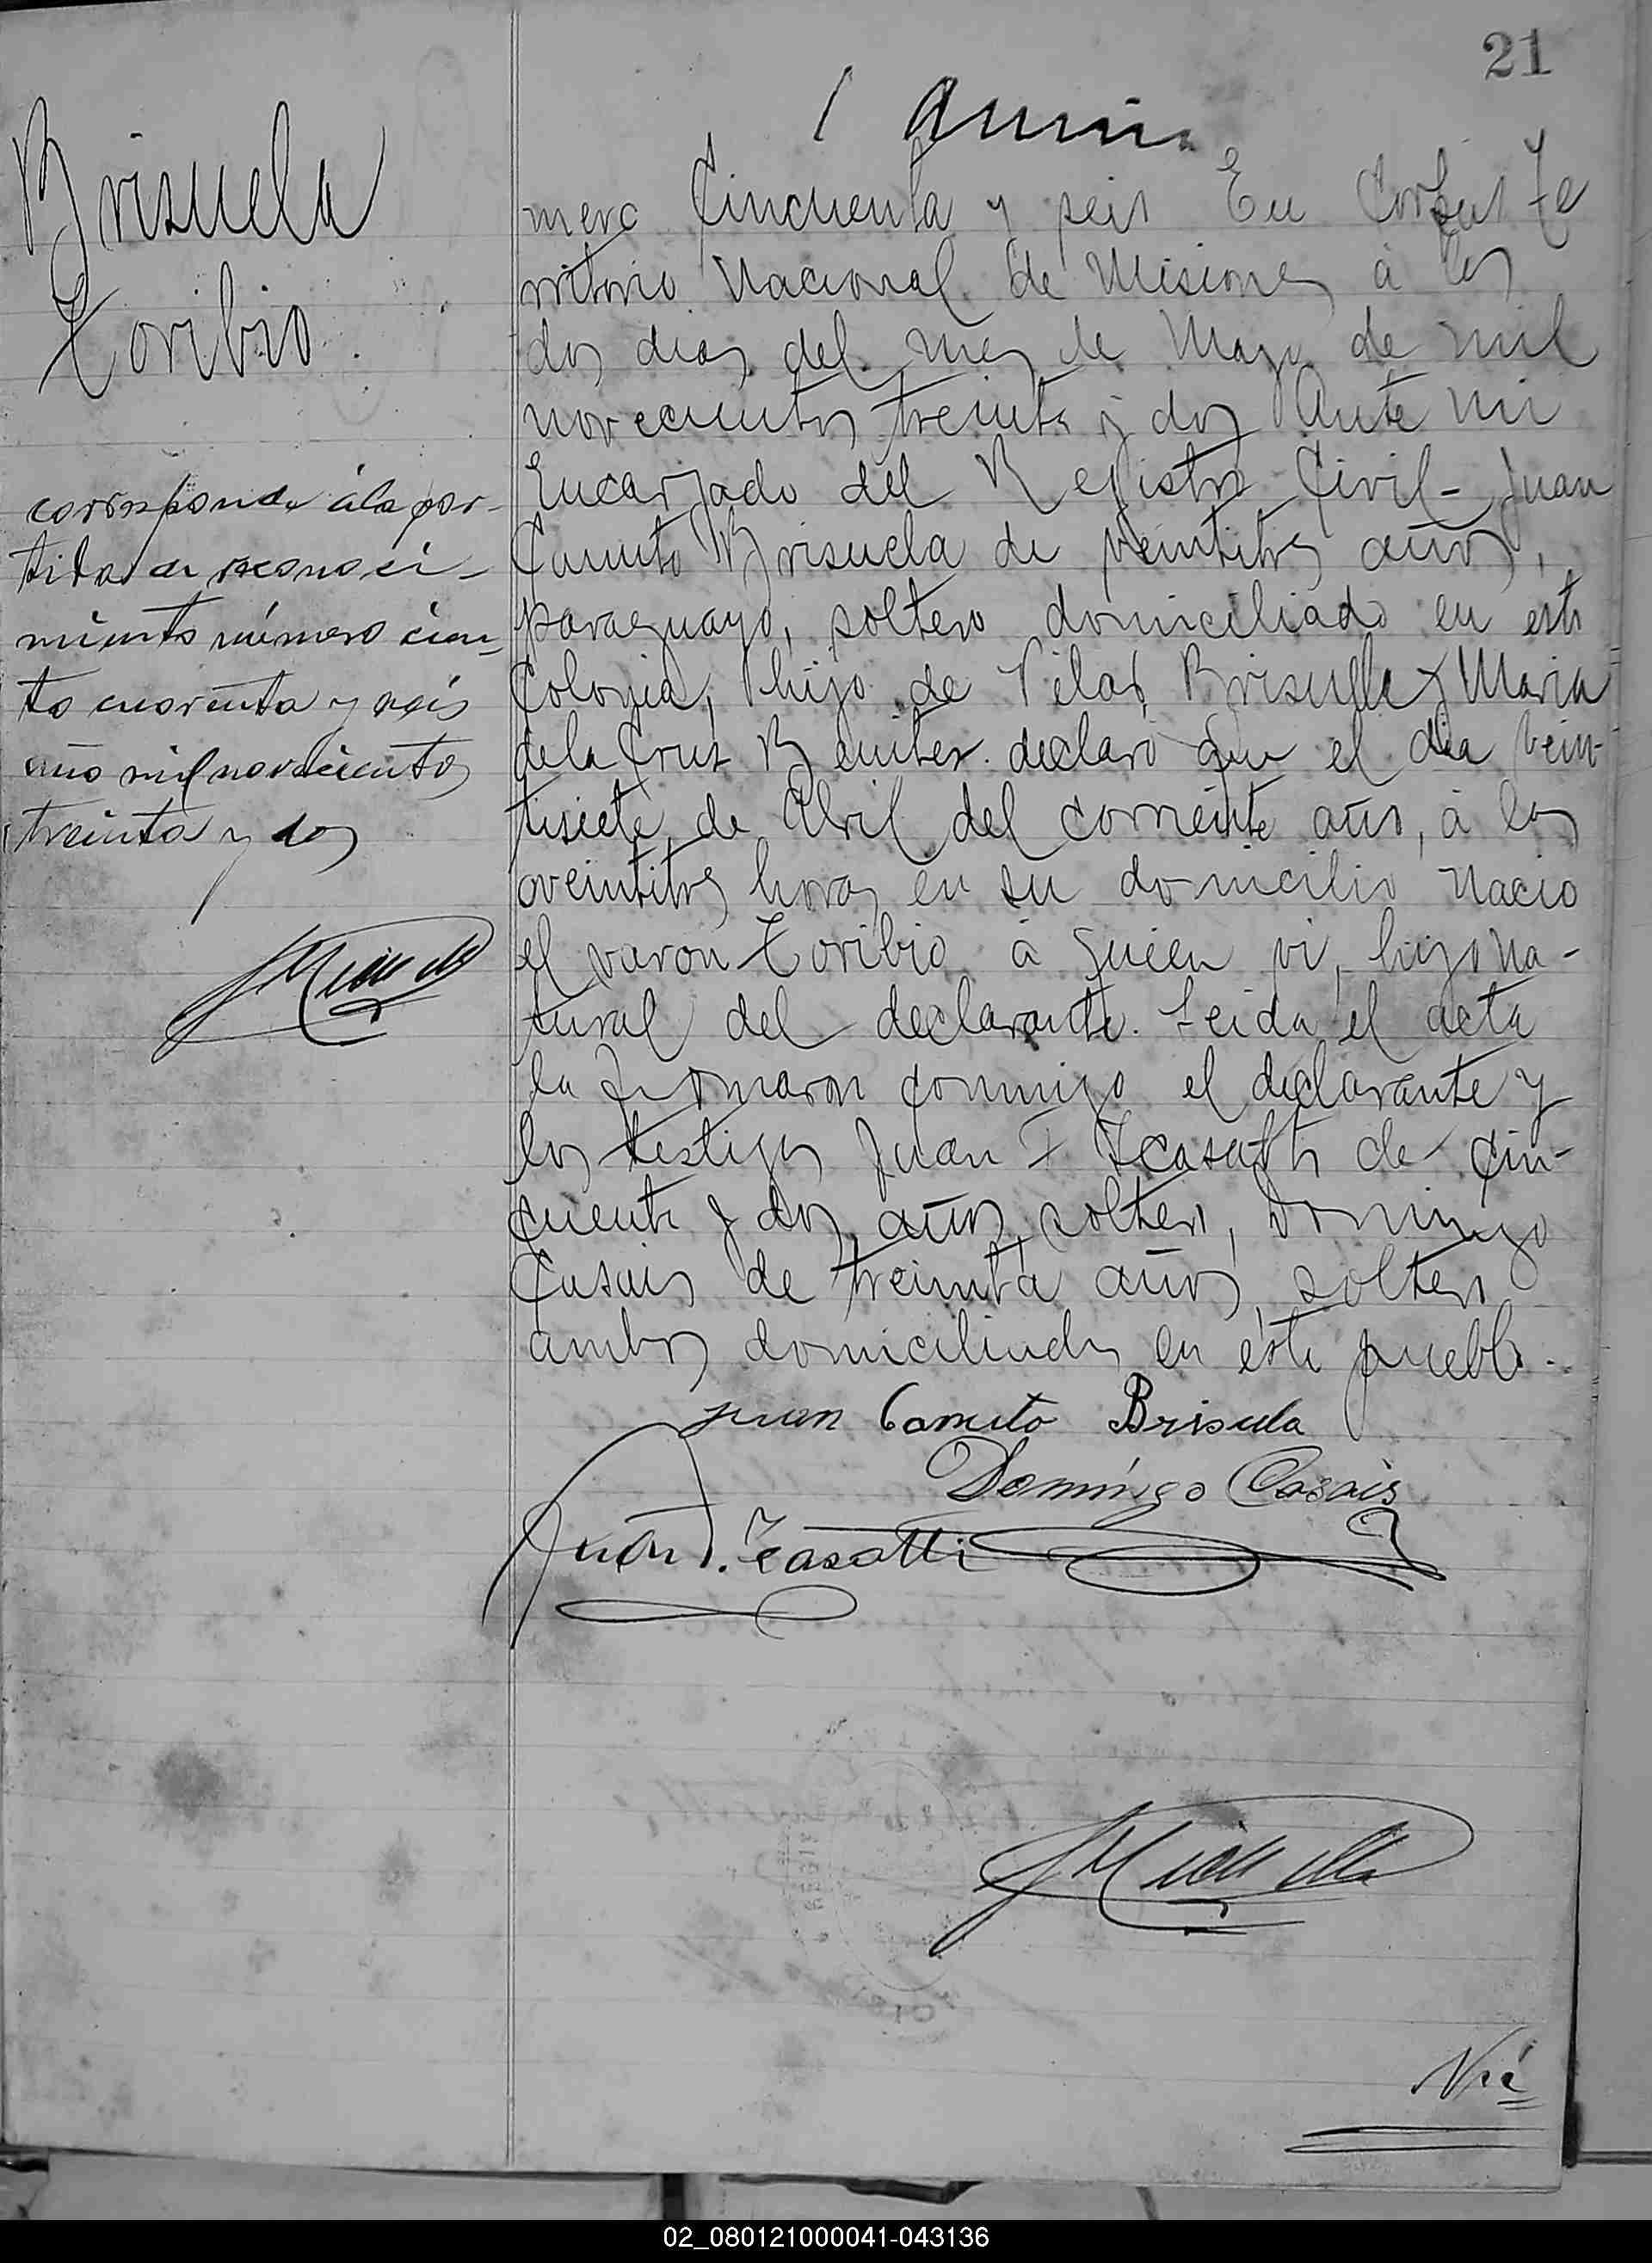 21
Brisuela
Toribio
corresponde á la par-
tida de reconoci-
miento número cien-
to cuarenta y seis
año mil novecientos
treinta y dos
mero Cincuenta y seis En Corpus Te
rritorio Nacional de Misiones á los
dos dias del mes de Mayo de mil
novecientos treinta y dos Ante mi
Encargado del Registro Civil - Juan
Canuto Brisuela de veintitres años,
paraguayo, soltero domiciliado en esta
Colonia, hijo de Pilar Brisuela y Maria
de la Cruz Benites. declaró que el dia vein-
tisiete de Abril del corriente año, á las
veintitres horas en su domicilio nacio
el varon Toribio á quien vi, hijo na-
tural del declarante. Leida el acta
la firmaron conmigo el declarante y
los testigos Juan F Icasatti de cin-
cuenta y dos años, soltero, Domingo
Casais de treinta años, soltero
ambos domiciliados en este pueblo.
Juan Canuto Brisuela
Domingo Casais
Juan F. Icasatti
Nú
02_080121000041-043136